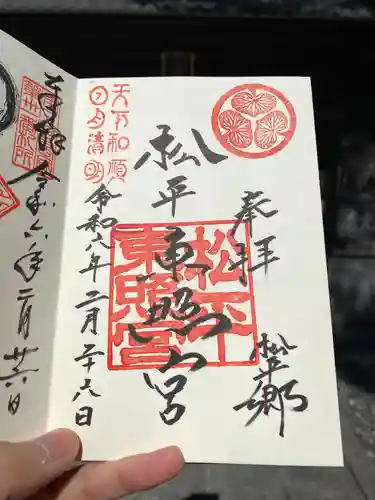 奉拝
松平郷
松平東照宮
松平
東照宮
天下和順
日月清明
令和八年二月二十六日
奉拝
令和六年二月廿六日